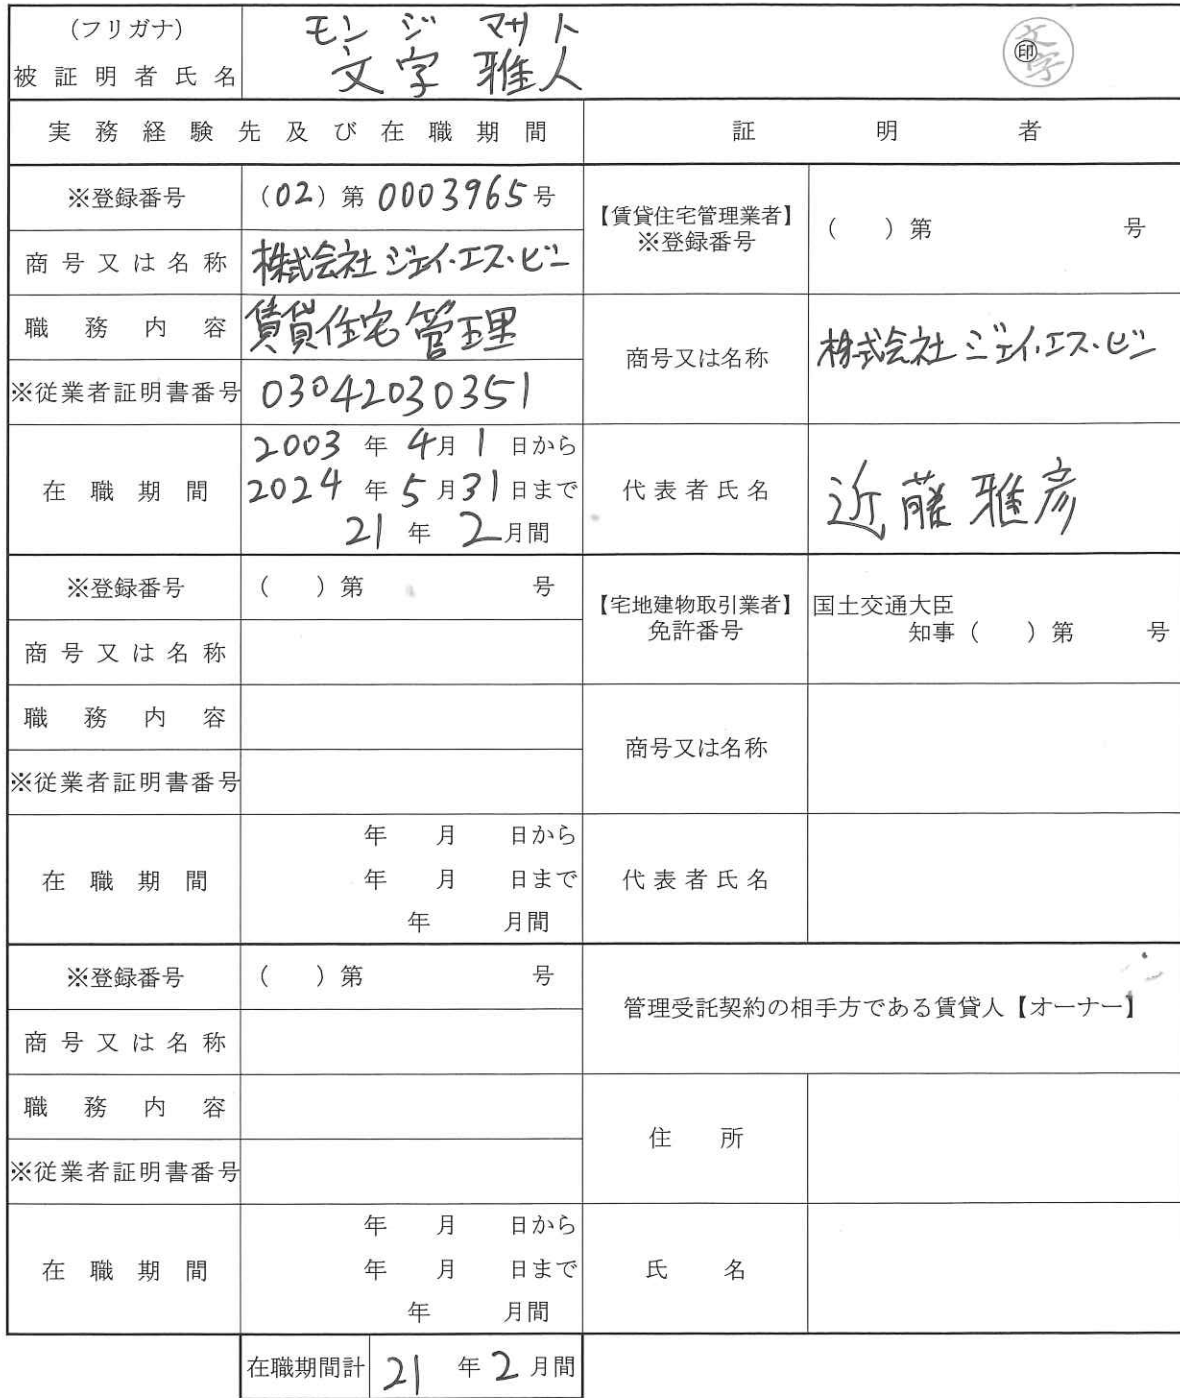 (フリガナ) モンジ マサト
被証明者氏名 文字 雅人 ㊞ 文字
実務経験先及び在職期間 証明者
※登録番号 (02)第0003965号
【賃貸住宅管理業者】
※登録番号 ( )第 号
商号又は名称 株式会社ジェイ・エス・ビー
職務内容 賃貸住宅管理
商号又は名称 株式会社ジェイ・エス・ビー
※従業者証明書番号 03042030351
在職期間
2003年4月1日から
2024年5月31日まで
21年2月間
代表者氏名 近藤雅彦
※登録番号 ( )第 号
【宅地建物取引業者】
免許番号
国土交通大臣
知事( )第 号
商号又は名称
職務内容
商号又は名称
※従業者証明書番号
在職期間
年 月 日から
年 月 日まで
年 月間
代表者氏名
※登録番号 ( )第 号
管理受託契約の相手方である賃貸人【オーナー】
商号又は名称
職務内容
住所
※従業者証明書番号
在職期間
年 月 日から
年 月 日まで
年 月間
氏名
在職期間計 21年2月間